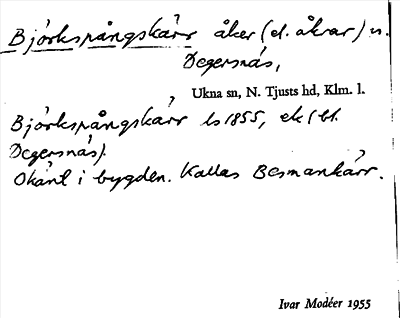 Björkspångskärr åker (el. åkrar) u.
Degersnäs,
Ukna sn, N. Tjusts hd, Klm. l.
Björkspångskärr ls 1855, ek (bl.
Degersnäs).
Okänt i bygden. Kallas Besmankärr.
Ivar Modéer 1955